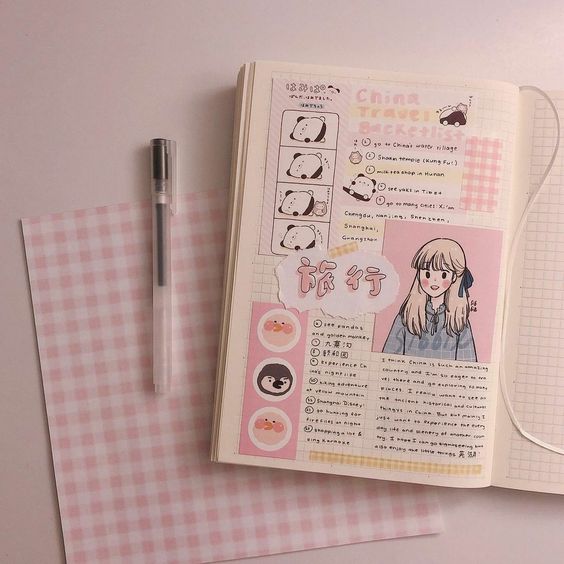 China
Travel
Backetlist
go to China's water village
Shaolin temple (Kung Fu!)
milk tea shop in Hunan
see yaks in Tibet
go to many cities: Xi'an
Chengdu, Nanjing, Shenzhen,
Shanghai,
Guangzhou
旅行
see pandas
and golden monkey
九寨沟
颐和园
experience Ch
ina's night life
hiking adventure
at yellow mountain
Shanghai Disney!
go hunting for
fireflies at night
shopping a lot &
sing karaoke
I think China is such an amazing
country and I'm so eager to tra
vel there and go exploring to many
places. I really want to see all
the ancient historical and cultural
things in China. But but mainly I
just want to experience the every
day life and scenery of another coun
try. I hope I can go there
also enjoy the little things